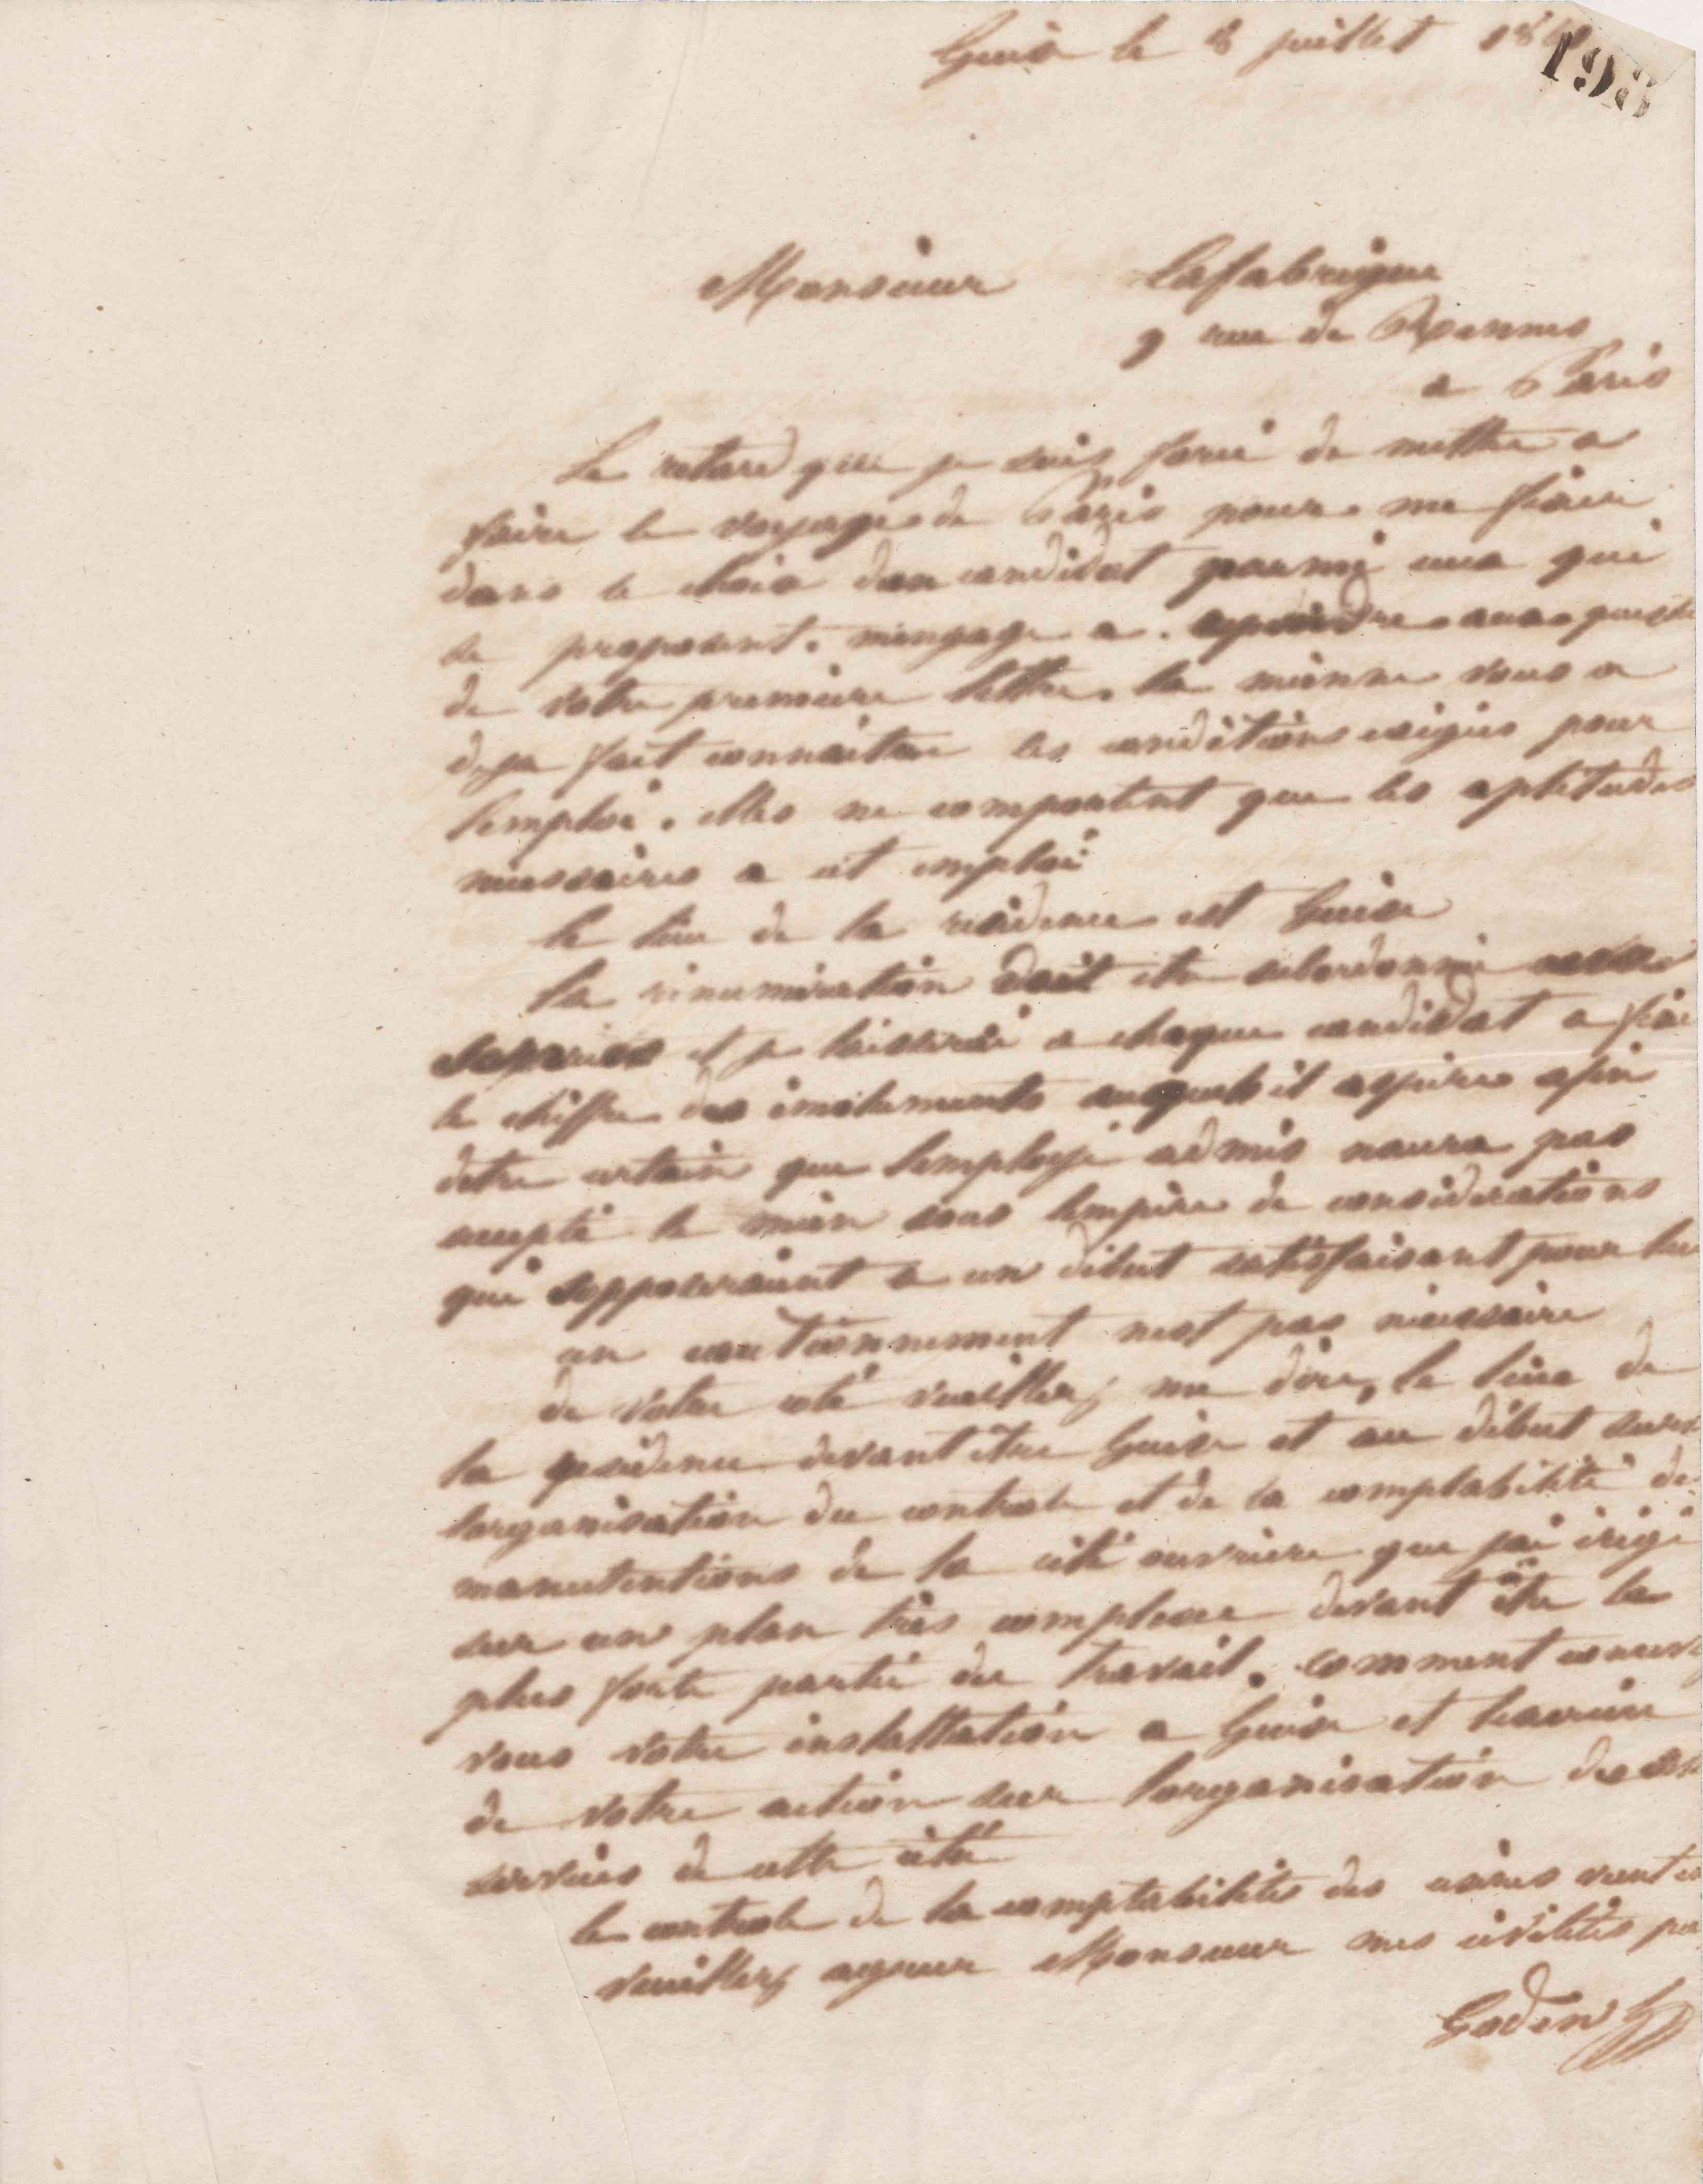 Guise le 8 juillet 186
198
Monsieur Lafabrigue
9 rue de Rennes
a Paris
Le retard que je suis forcé de mettre a
faire le voyage de Paris pour me fixer
dans le choix dun candidat parmi ceux qui
se proposent. mengage a repondre aux
de votre premiere lettre. la mienne vous a
deja fait connaitre les conditions exigées pour
lemploi. elles ne comportent que les aptitudes
nécessaires a cet emploi
le lieu de la résidence est Guise
La rénumération doit etre subordonnée
et je laisserai a chaque candidat a fixer
le chiffre des émoluments auquels il aspire afin
detre certain que lemployé admis naura pas
accepté le mien sous lempire de considérations
qui sopposeraient a un début satisfaisant pour lui
un cautionnement nest pas nécessaire
de votre coté veuillez me dire, le lieu de
la résidence devant être Guise et au début
lorganisation du controle et de la comptabilité des
manutentions de la cité ouvriere que jai érigé
sur un plan très complexe devant être la
plus forte partie du travail. comment concevez
vous votre installation a Guise et lavenir
de votre action sur lorganisation des
services de cette cité
le controle de la comptabilité des usines
veuillez agréer Monsieur mes civilités
Godin